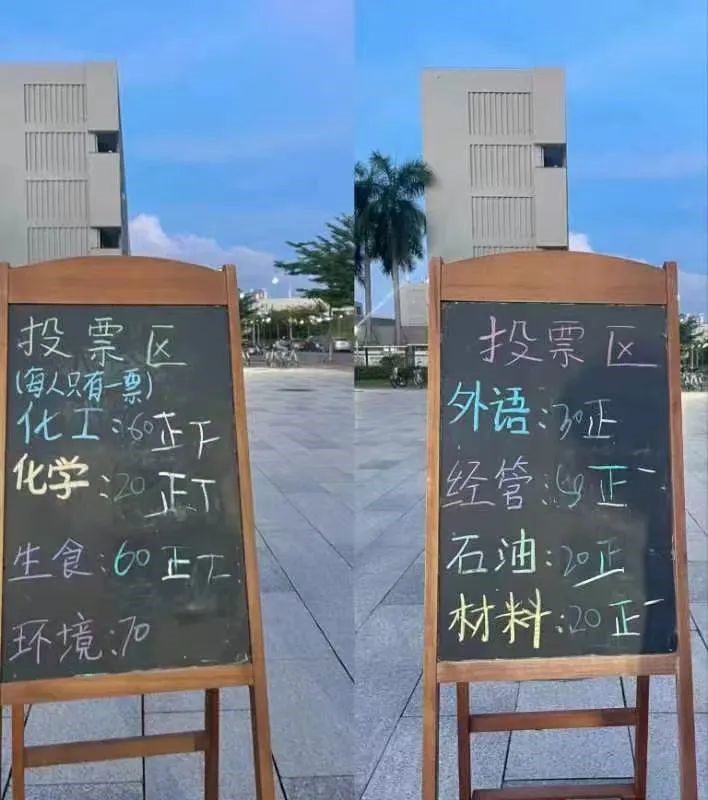 投票区
(每人只有一票)
化工:60正下
化学:20正丅
生食:60正丅
环境:70
投票区
外语:30正
经管:正一
石油:20正
材料:20正一